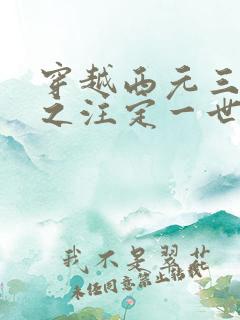 穿越西元三
之汪定一世
我不是翠花
未经同意禁止转载